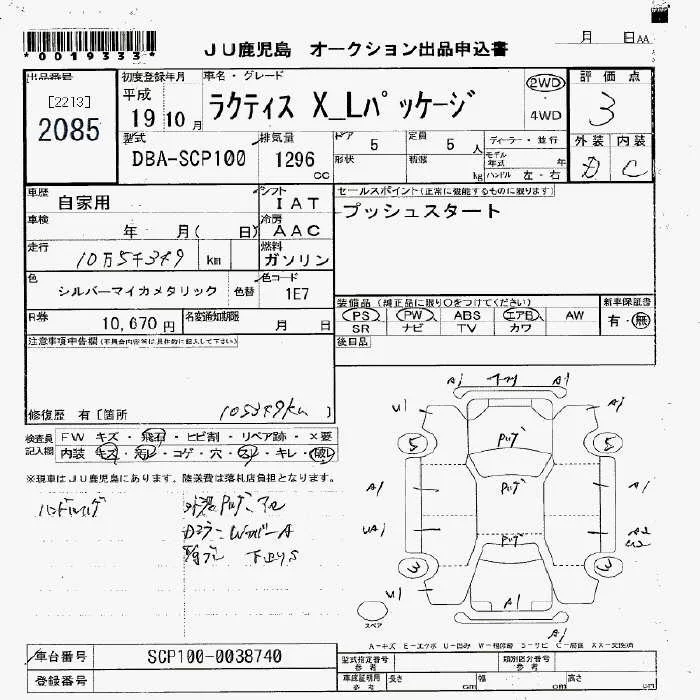 *0019333*
JU鹿児島 オークション出品申込書
月 日AA
出品番号
[2213]
2085
初度登録年月
平成
19 10 月
車名・グレード
ラクティス X_Lパッケージ
2WD
4WD
評価点
3
外装 内装
D C
型式
DBA-SCP100
排気量
1296
cc
ドア 5
形状
定員 5 人
積載 kg
ディーラー・並行
モデル年式 年
ハンドル 左・右
車歴
自家用
シフト
IAT
車検
年 月( 日)
冷房
AAC
走行
10万5千349 km
燃料
ガソリン
色
シルバーマイカメタリック
色替
色コード
1E7
R券
10,670 円
名変通知期限
月 日
セールスポイント(正常に機能するものに限ります)
プッシュスタート
装備品(純正品に限り○をつけてください)
PS PW ABS エアB AW
SR ナビ TV カワ
新車保証書
有・無
後日品
注意事項申告欄(不具合内容等は具体的に記入して下さい)
修復歴 有[箇所 105349km ]
検査員
記入欄
FW キズ・飛石・ヒビ割・リペア跡・×要
内装 キズ・汚レ・コゲ・穴・スレ・キレ・破レ
※現車はJU鹿児島にあります。陸送費は落札店負担となります。
下回りS
A1 A1
U1 A1
5 5
A1 A1
UA1 A2
3 3
U1
A1
A1
スペア
A-キズ E-エクボ U-凹み W-補修跡 S-サビ C-腐蝕 XX-交換済
車台番号
SCP100-0038740
登録番号
型式指定番号
参考
類別区分番号
参考
車庫証明用
参考
長さ cm
幅 cm
高さ cm